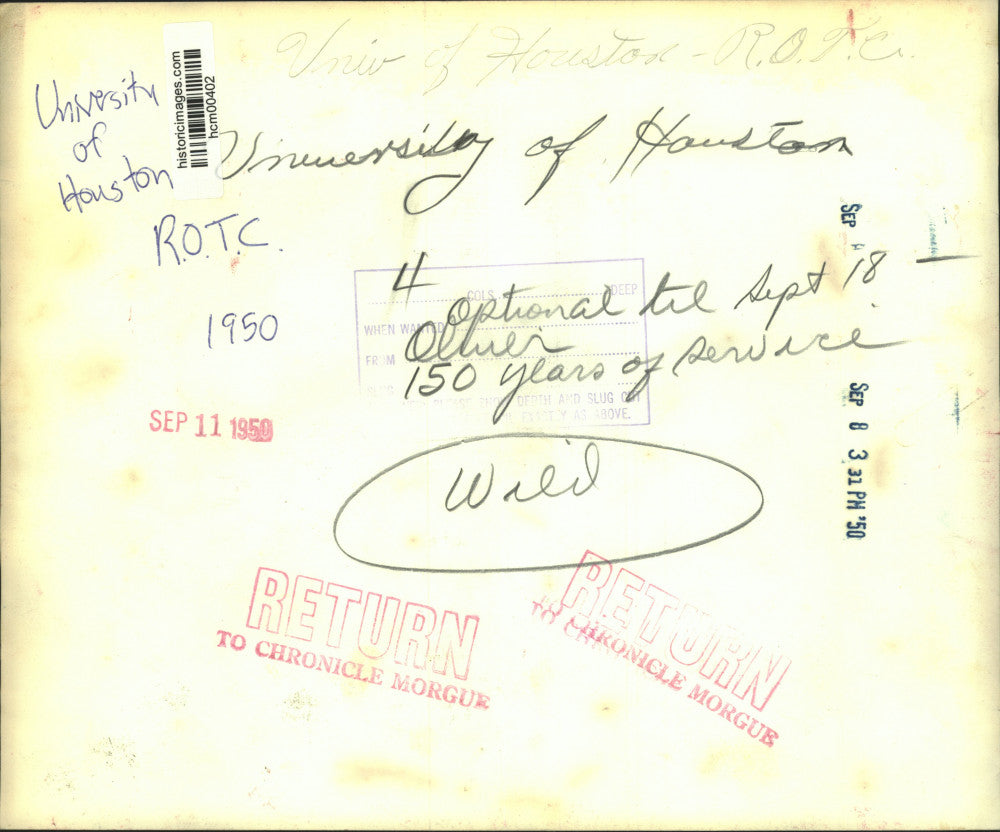 Univ of Houston - R.O.T.C.
University
of
Houston
R.O.T.C.
1950
historicimages.com
hcm00402
University of Houston
4
COLS. DEEP
Optional til Sept 18
WHEN WANTED
Oliver
FROM
150 years of service
SLUG
PLEASE SHOW DEPTH AND SLUG OUT
EXACTLY AS ABOVE.
SEP 11 1950
Wild
SEP
SEP 8 3 31 PM '50
RETURN
TO CHRONICLE MORGUE
RETURN
TO CHRONICLE MORGUE